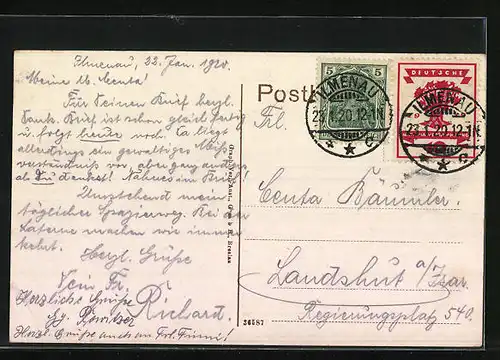 Ilmenau, 22. Jan. 1920.
Meine lb. Centa!
Für Deinen Brief herzl.
Dank. Brief ist schon gleich fertig
u. folgt heute noch. Da liegt
allerdings ein gewaltiges Miß-
verständnis vor aber ganz anders
als Du denkst! Näheres im Brief!
Umstehend mein
täglicher Spazierweg. Bei der
Laterne machen wir immer
kehrt.
Herzl. Grüße
Dein Fr.
Richard.
Herzliche Grüße
Herzl. Grüße auch an Frl. Fanni!
Graph. Verl.-Anst., G. m. b. H., Breslau
36587
Postk
5 5
ILMENAU
23.1.20.12-1N
* * c
DEUTSCHE
ILMENAU
23.1.20.12-1N
* * c
Frl.
Centa Bammler.
Landshut a/Isar
Regierungsplatz 540.